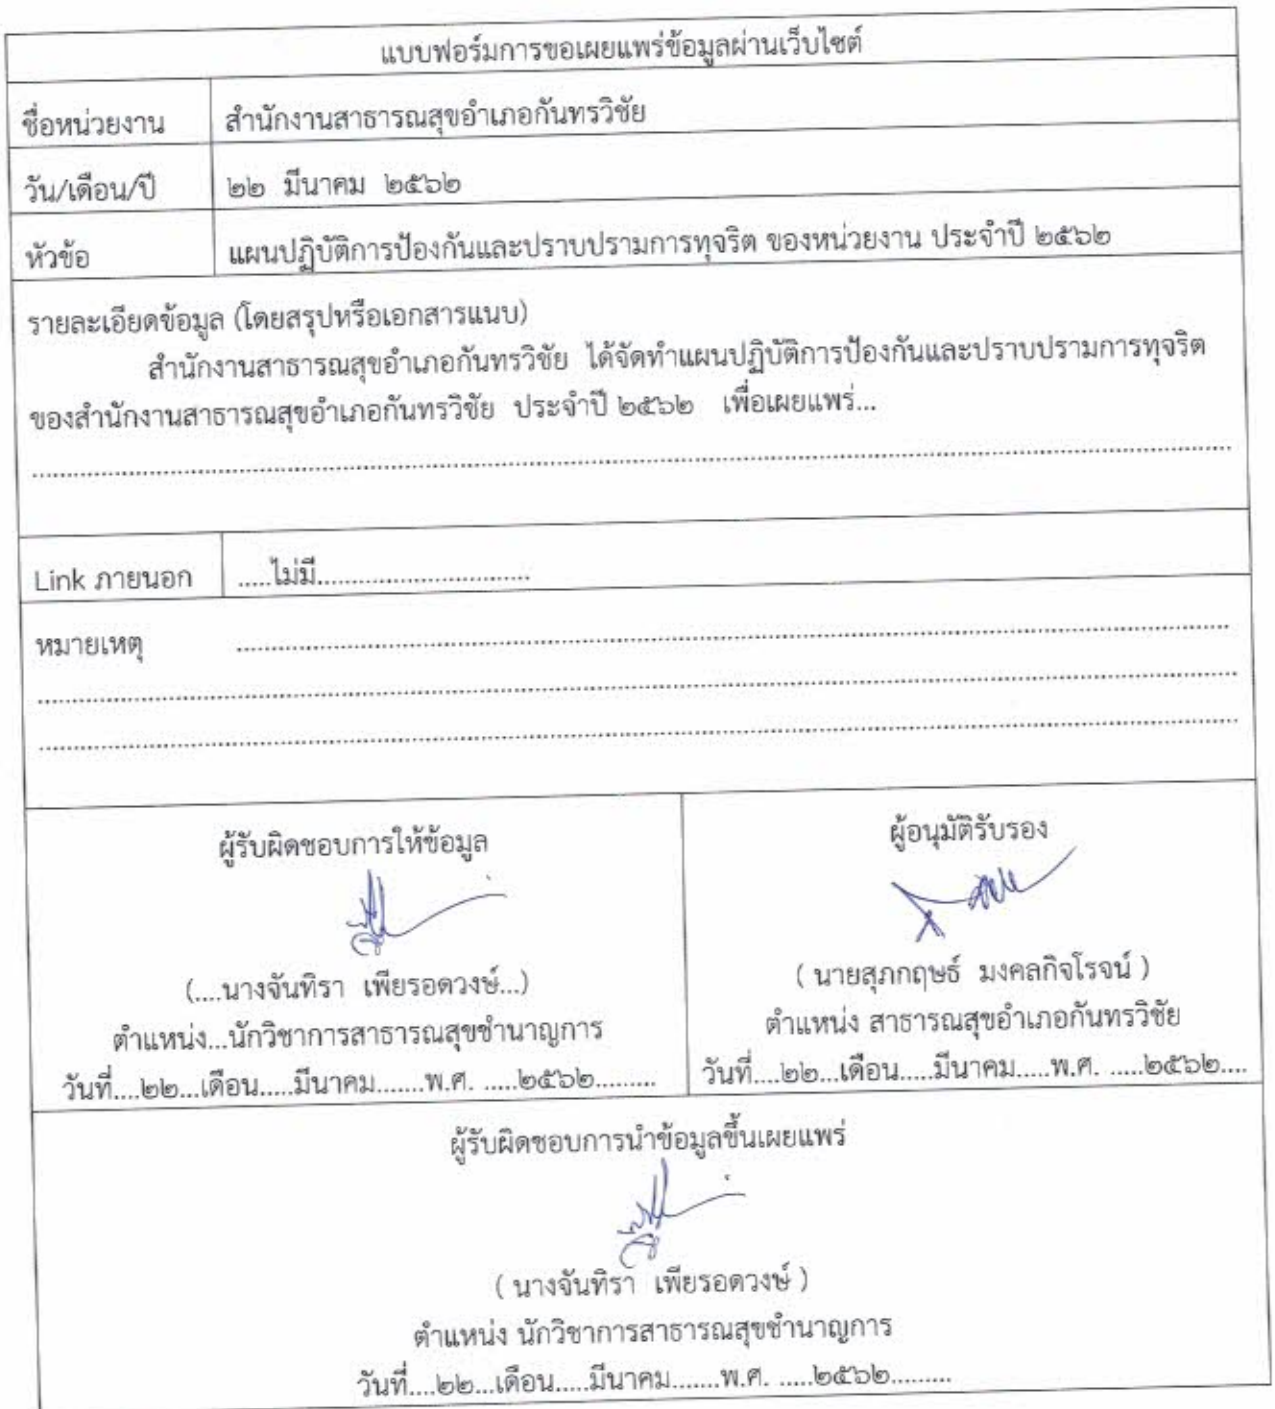 แบบฟอร์มการขอเผยแพร่ข้อมูลผ่านเว็บไซต์
ชื่อหน่วยงาน สำนักงานสาธารณสุขอำเภอกันทรวิชัย
วัน/เดือน/ปี ๒๒ มีนาคม ๒๕๖๒
หัวข้อ แผนปฏิบัติการป้องกันและปราบปรามการทุจริต ของหน่วยงาน ประจำปี ๒๕๖๒
รายละเอียดข้อมูล (โดยสรุปหรือเอกสารแนบ)
สำนักงานสาธารณสุขอำเภอกันทรวิชัย ได้จัดทำแผนปฏิบัติการป้องกันและปราบปรามการทุจริต
ของสำนักงานสาธารณสุขอำเภอกันทรวิชัย ประจำปี ๒๕๖๒ เพื่อเผยแพร่...
Link ภายนอก .....ไม่มี..............................
หมายเหตุ
ผู้รับผิดชอบการให้ข้อมูล
(....นางจันทิรา เพียรอดวงษ์...)
ตำแหน่ง...นักวิชาการสาธารณสุขชำนาญการ
วันที่....๒๒...เดือน.....มีนาคม.......พ.ศ. .....๒๕๖๒.........
ผู้อนุมัติรับรอง
( นายสุภกฤษธ์ มงคลกิจโรจน์ )
ตำแหน่ง สาธารณสุขอำเภอกันทรวิชัย
วันที่....๒๒...เดือน.....มีนาคม.....พ.ศ. .....๒๕๖๒....
ผู้รับผิดชอบการนำข้อมูลขึ้นเผยแพร่
( นางจันทิรา เพียรอดวงษ์ )
ตำแหน่ง นักวิชาการสาธารณสุขชำนาญการ
วันที่....๒๒...เดือน.....มีนาคม.......พ.ศ. .....๒๕๖๒.........